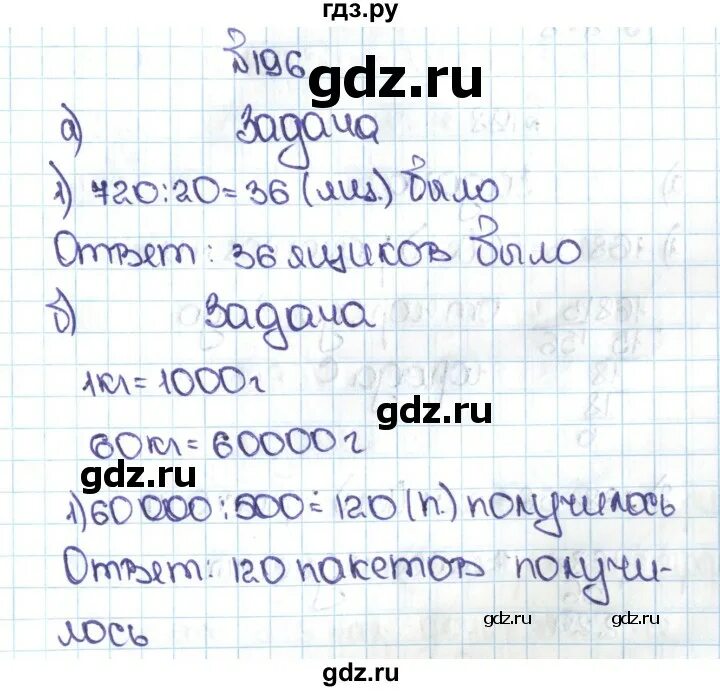 гдз.ру
№196
gdz.ru
а) Задача
1) 720:20=36 (ящ.) было
Ответ: 36 ящиков было
б) Задача
1кг=1000г
gdz.ru
60кг=60000г
gdz.ru
1) 60 000:500=120 (п.) получилось
Ответ: 120 пакетов получи-
gdz.ru
лось
gdz.ru